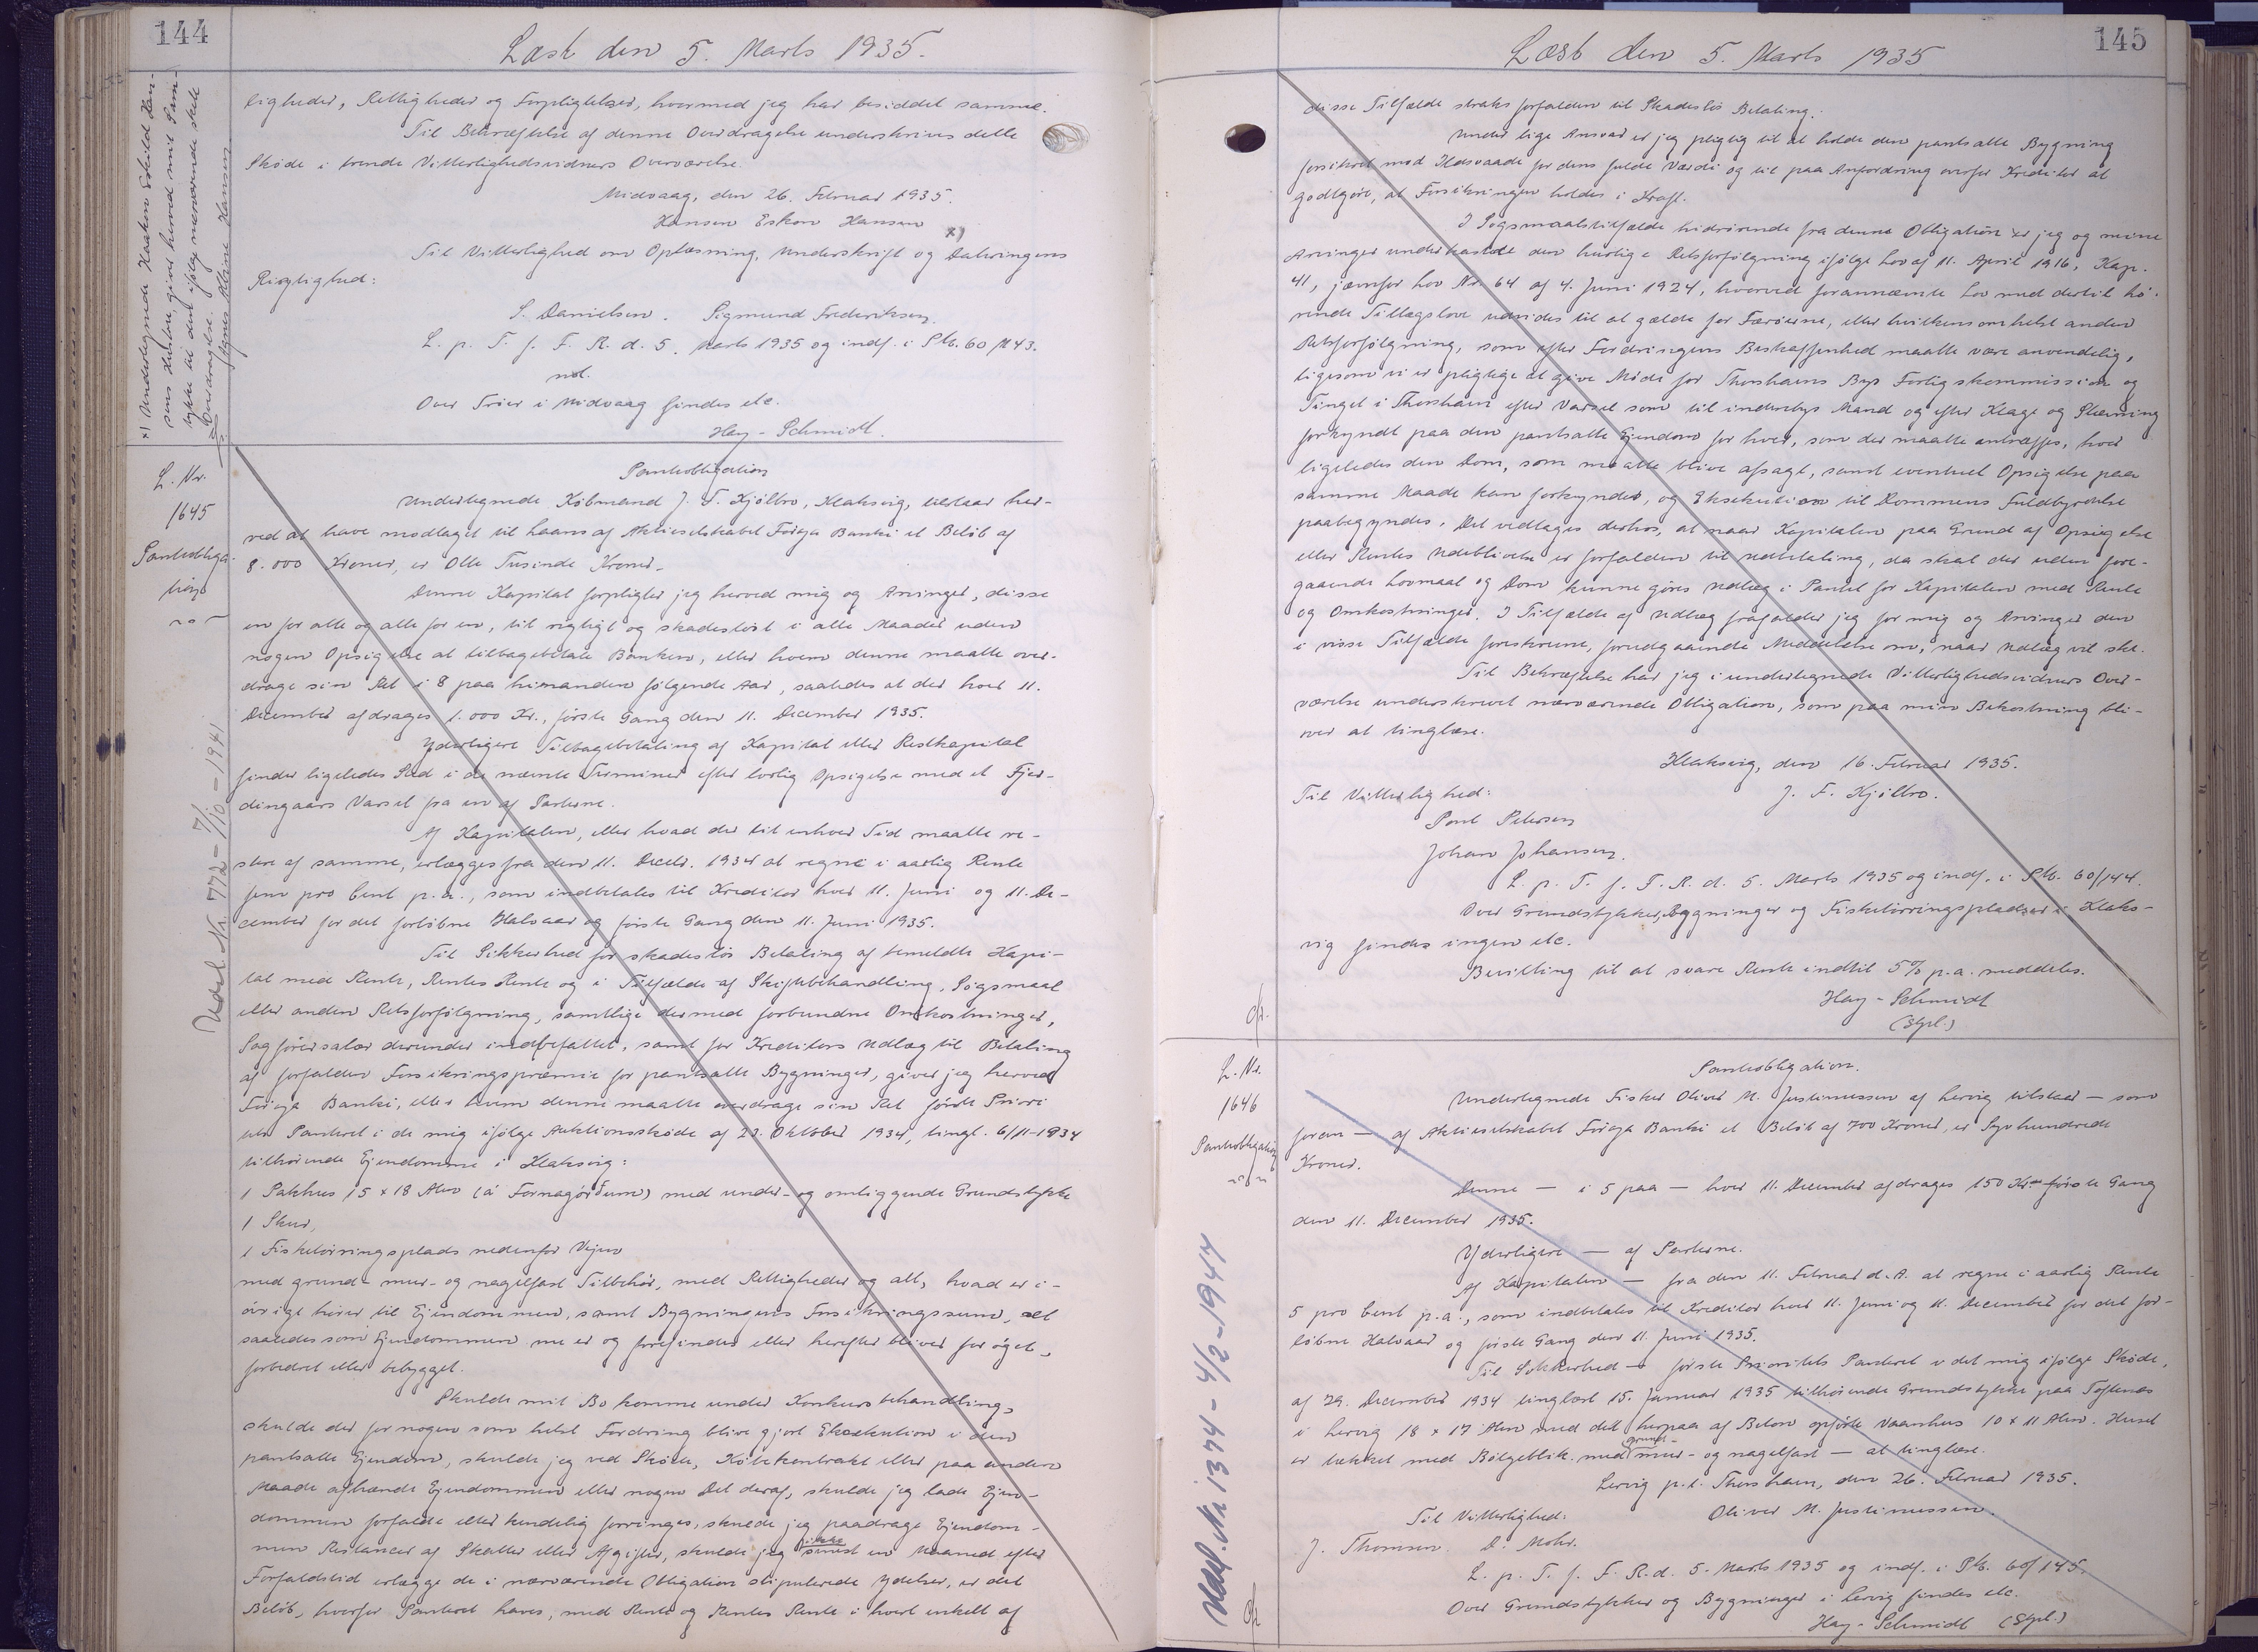 144
Læst den 5. Marts 1935.
ligheder, Rettigheder og Forpligtelser, hvormed jeg har besiddet samme.
Til Bekræftelse af denne Overdragelse underskrives dette
Skøde i trende Vitterlighedsvidners Overværelse.
Midvaag, den 26. Februar 1935.
Hansen Eskon Hansen
x)
Til Vitterlighed om Oplæsning, Underskrift og Dateringens
Rigtighed:
S. Danielsen. Sigmund Frederiksen.
L. p. T. f. F. R. d. 5. Marts 1935 og indf. i Ptb. 60/143.
not.
Over Trøer i Midvaag findes etc.
Hey-Schmidt.
x) Undertegnede Hustru
sens Hustru, giver herved mit Sam-
tykke til den ifølge nærværende skete
Overdragelse.
Hansen
L. Nr.
1645
Pantobliga-
tion
Udsl. Nr. 772 - 7/10 - 1941
Pantobligation
Undertegnede Købmand J. F. Kjølbro, Klaksvig, tilstaar her-
ved at have modtaget til Laans af Aktieselskabet Føroya Banki et Beløb af
8.000 Kroner, er Otte Tusinde Kroner.
Denne Kapital forpligter jeg herved mig og Arvinger, disse
en for alle og alle for en, til rigtigt og skadesløst i alle Maader uden
nogen Opsigelse at tilbagebetale Banken, eller hvem denne maatte over-
drage sin Ret i 8 paa hinanden følgende Aar, saaledes at der hver 11.
December afdrages 1.000 Kr., første Gang den 11. December 1935.
Yderligere Tilbagebetaling af Kapital eller Restkapital
finder ligeledes Sted i de nævnte Terminer efter lovlig Opsigelse med et Fjer-
dingaars Varsel fra en af Parterne.
Af Kapitalen, eller hvad der til enhver Tid maatte re-
stere af samme, erlægges fra den 11. Decbr. 1934 at regne i aarlig Rente
fem pro Cent p.a., som indbetales til Kreditor hver 11. Juni og 11. De-
cember for det forløbne Halvaar og første Gang den 11. Juni 1935.
Til Sikkerhed for skadesløs Betaling af bemeldte Kapi-
tal med Rente, Rentes Rente og i Tilfælde af Skiftebehandling, Søgsmaal
eller anden Retsforfølgning, samtlige dermed forbundne Omkostninger,
Sagførersalær derunder indbefattet, samt for Kreditors Udlæg til Betaling
af forfalden Forsikringspræmie for pantsatte Bygninger, giver jeg herved
Føroya Banki, eller hvem denne maatte overdrage sin Ret første Priori
tets Panteret i de mig ifølge Auktionsskøde af 23. Oktober 1934, tingl. 6/11-1934
tilhørende Ejendomme i Klaksvig:
1 Pakhus 15 x 18 Alen (á Fornagørðum) med under- og omliggende Grundstykke
1 Skur,
1 Fisketørringsplads nedenfor Vejen
med grund- mur- og nagelfast Tilbehør, med Rettigheder og alt, hvad er i-
øvrigt hører til Ejendommen, samt Bygningens Forsikringssum, alt
saaledes som Ejendommen nu er og forefindes eller herefter bliver forøget,
forbedret eller bebygget.
Skulde mit Bo komme under Konkursbehandling,
skulde der for nogen som helst Fordring blive gjort Eksekution i den
pantsatte Ejendom, skulde jeg ved Skøde, Købekontrakt eller paa anden
Maade afhænde Ejendommen eller nogen Del deraf, skulde jeg lade Ejen-
dommen forfalde eller kendelig forringes, skulde jeg paadrage Ejendom-
men Restancer af Skatter eller Afgifter, skulde jeg ikke senest en Maaned efter
Forfaldstid erlægge de i nærværende Obligation stipulerede Ydelser, er det
Beløb, hvorfor Panteret haves, med Rente og Rentes Rente i hvert enkelt af
145
Læst den 5. Marts 1935
disse Tilfælde straks forfalden til Skadesløs Betaling.
Under lige Ansvar er jeg pligtig til at holde den pantsatte Bygning
forsikret mod Ildsvaade for dens fulde Værdi og til paa Anfordring overfor Kreditor at
godtgøre, at Forsikringen holdes i Kraft.
I Søgsmaalstilfælde hidrørende fra denne Obligation er jeg og mine
Arvinger underkastede den hurtige Retsforfølgning ifølge Lov af 11. April 1916, Kap.
41, jævnfør Lov Nr. 64 af 4. Juni 1924, hvorved forannævnte Lov med dertil hø-
rende Tillægslove udvides til at gælde for Færøerne, eller hvilkensomhelst anden
Retsforfølgning, som efter Fordringens Beskaffenhed maatte være anvendelig,
ligesom vi er pligtige at give Møde for Thorshavns Bys Forligskommission og
Tinget i Thorshavn efter Varsel som til indenbys Mand og efter Klage og Stævning
forkyndt paa den pantsatte Ejendom for hver, som der maatte antræffes, hvor
ligeledes den Dom, som maatte blive afsagt, samt eventuel Opsigelse paa
samme Maade kan forkyndes, og Eksekution til Dommens Fuldbyrdelse
paabegyndes. Det vedtages derhos, at naar Kapitalen paa Grund af Opsigelse
eller Rentes Udeblivelse er forfalden til Udbetaling, da skal der uden fore-
gaaende Lovmaal og Dom kunne gøres Udlæg i Pantet for Kapitalen med Rente
og Omkostninger. I Tilfælde af Udlæg frafalder jeg for mig og Arvinger den
i visse Tilfælde foreskrevne, forudgaaende Meddelelse om, naar Udlæg vil ske.
Til Bekræftelse har jeg i undertegnede Vitterlighedsvidners Over-
værelse underskrevet nærværende Obligation, som paa min Bekostning bli-
ver at tinglæse.
Klaksvig, den 16. Februar 1935.
Til Vitterlighed: J. F. Kjølbro.
Poul Petersen
Johan Johansen.
L. p. T. f. F. R. d. 5. Marts 1935 og indf. i Ptb. 60/144.
Over Grundstykker, Bygninger og Fisketørringspladser i Klaks-
vig findes ingen etc.
Bevilling til at svare Rente indtil 5% p.a. meddeles.
Hey-Schmidt
(Stpl.)
L. Nr.
1646
Pantobligation
Udsl. Nr. 1374 - 4/2 - 1944
Pantobligation.
Undertegnede Fisker Oliver M. Justinussen af Lervig tilstaar — som
foran — af Aktieselskabet Føroya Banki et Beløb af 700 Kroner, er Syv hundrede
Kroner.
Denne — i 5 paa — hver 11. December afdrages 150 Kr. første Gang
den 11. December 1935.
Yderligere — af Parterne.
Af Kapitalen — fra den 11. Februar d.A. at regne i aarlig Rente
5 pro Cent p.a., som indbetales til Kreditor hver 11. Juni og 11. December for det for-
løbne Halvaar og første Gang den 11. Juni 1935.
Til Sikkerhed — første Prioritets Panteret i det mig ifølge Skøde,
af 29. December 1934 tinglæst 15. Januar 1935 tilhørende Grundstykke paa Toftenes
i Lervig 18 x 17 Alen med det herpaa af Beton opførte Vaanhus 10 x 11 Alen. Huset
er tækket med Bølgeblik. med grund- mur- og nagelfast — at tinglæse.
Lervig p.t. Thorshavn, den 26. Februar 1935.
Til Vitterlighed: Oliver M. Justinussen.
J. Thomsen. D. Mohr.
L. p. T. f. F. R. d. 5. Marts 1935 og indf. i Ptb. 60/145.
Over Grundstykker og Bygninger i Lervig findes etc.
Hey-Schmidt (Stpl.)